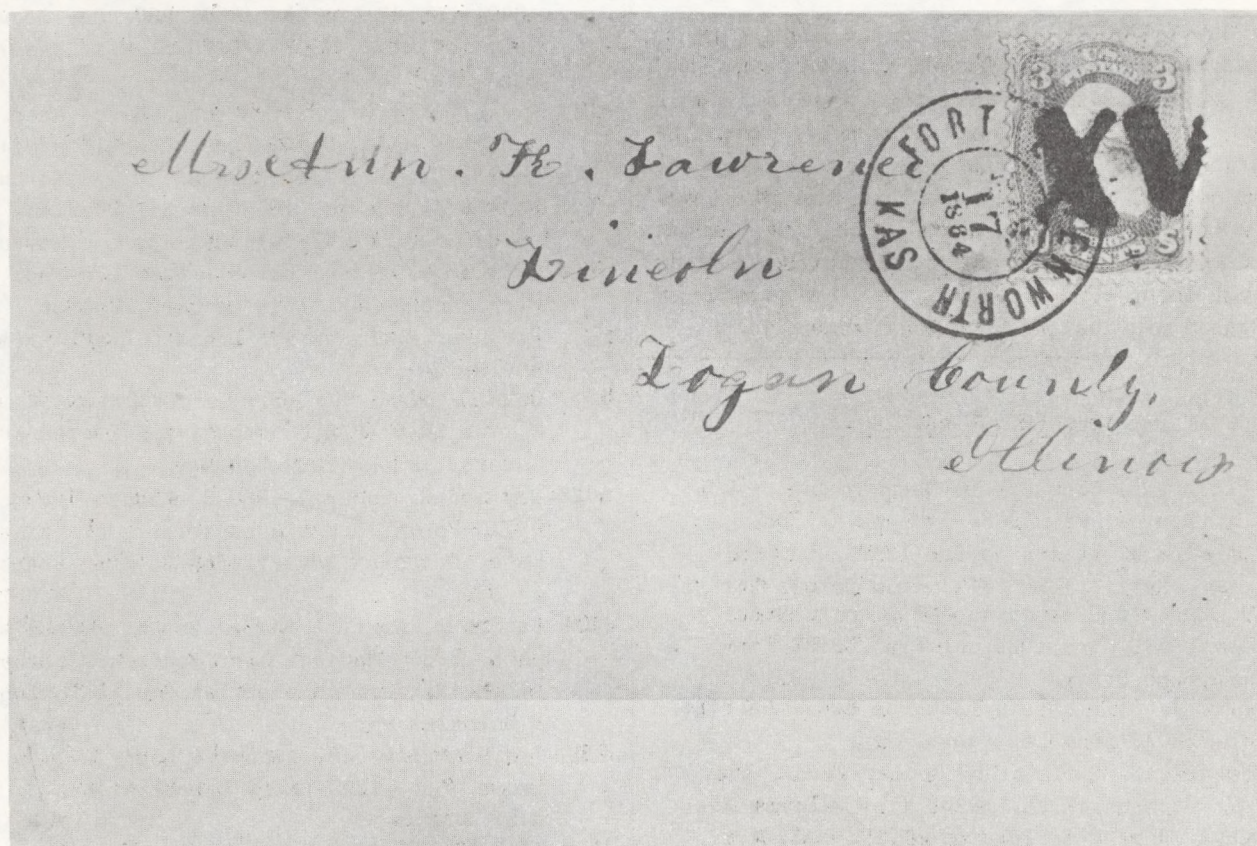 Mrs Ann. K. Lawrence
Lincoln
Logan County,
Illinois
FORT ENWORTH KAS
17
1864
3 3
XV